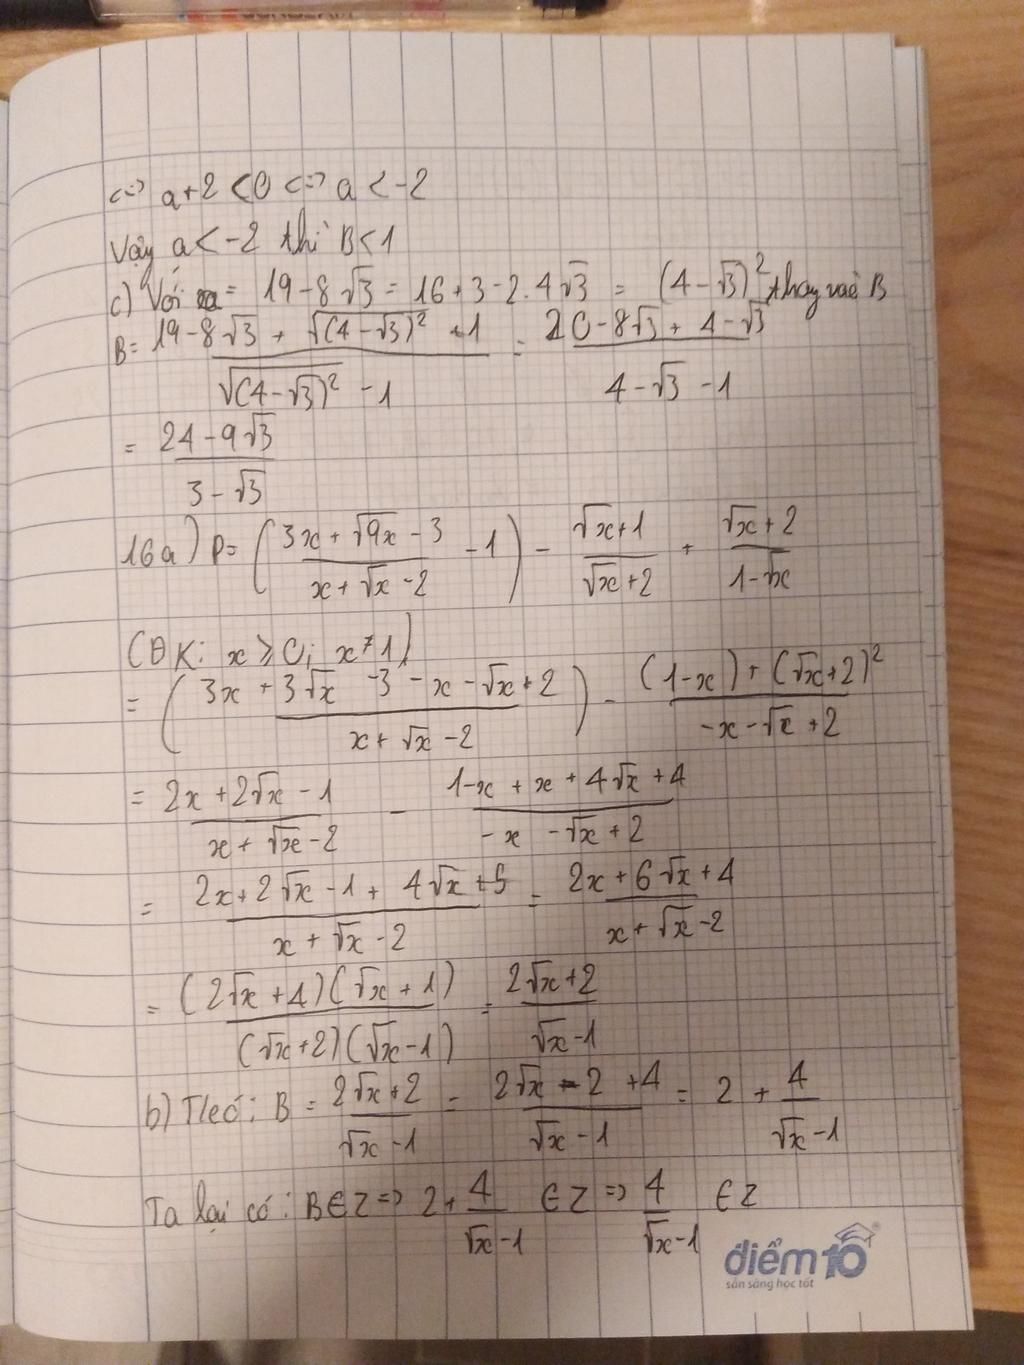 <=> a+2 <0 <=> a < -2
Vậy a< -2 thì B<1
c) Với a = 19-8√3 = 16+3-2.4√3 = (4-√3)² thay vào B
B= (19-8√3 + √(4-√3)² +1)/(√(4-√3)² -1) = (20-8√3 + 4-√3)/(4-√3 -1)
= (24-9√3)/(3-√3)
16a) P= ((3x+√9x -3)/(x+√x -2) -1) - (√x+1)/(√x+2) + (√x+2)/(1-√x)
(ĐK: x ≥ 0; x≠1)
= ((3x +3√x -3 -x -√x +2)/(x+√x -2)) - ((1-x) + (√x+2)²)/(-x-√x+2)
= (2x+2√x -1)/(x+√x-2) - (1-x + x + 4√x +4)/(-x -√x+2)
= (2x+2√x -1 + 4√x +5)/(x+√x -2) = (2x+6√x+4)/(x+√x-2)
= (2√x +4)(√x +1)/(√x+2)(√x-1) = (2√x+2)/(√x-1)
b) Theo: B = (2√x+2)/(√x-1) = (2√x -2 +4)/(√x -1) = 2 + 4/(√x-1)
Ta lại có: B∈Z => 2+ 4/(√x-1) ∈Z => 4/(√x-1) ∈Z
điểm10
sẵn sàng học tốt